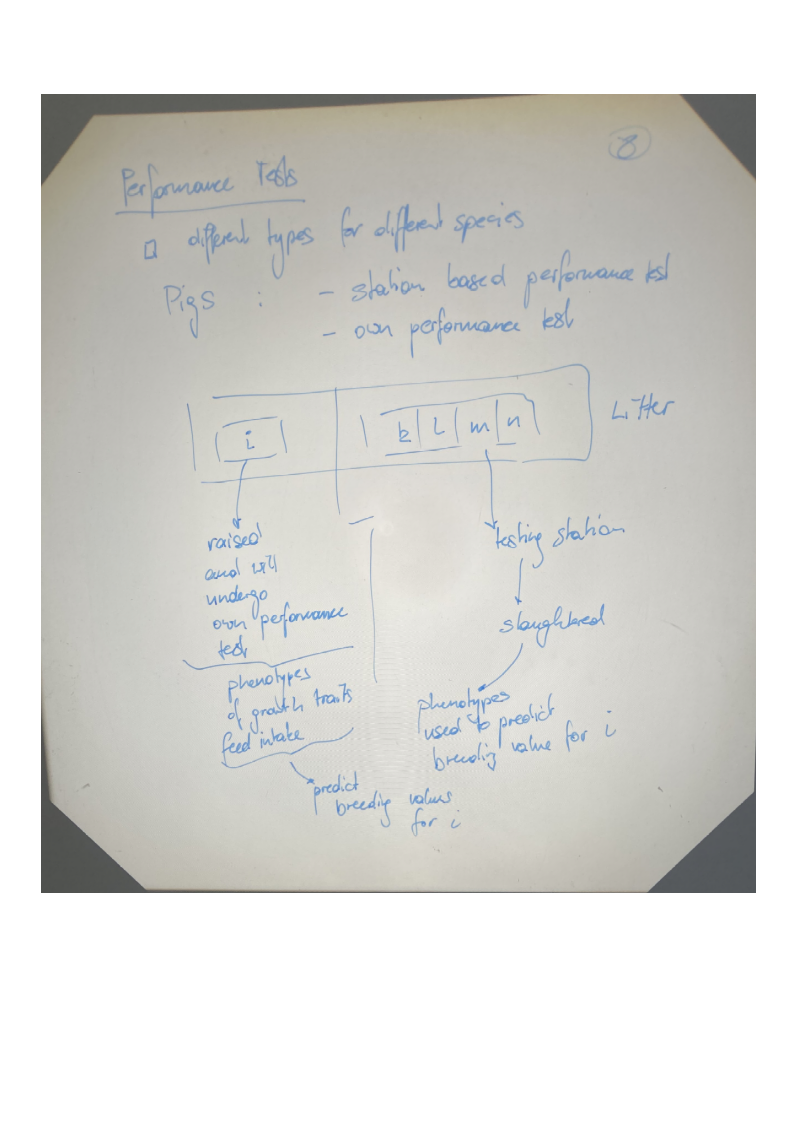 8
Performance Tests
different types for different species
Pigs : - station based performance test
- own performance test
i k l m n Litter
raised
and will
undergo
own performance
test
phenotypes
of growth traits
feed intake
predict
breeding values
for i
testing station
slaughtered
phenotypes
used to predict
breeding value for i